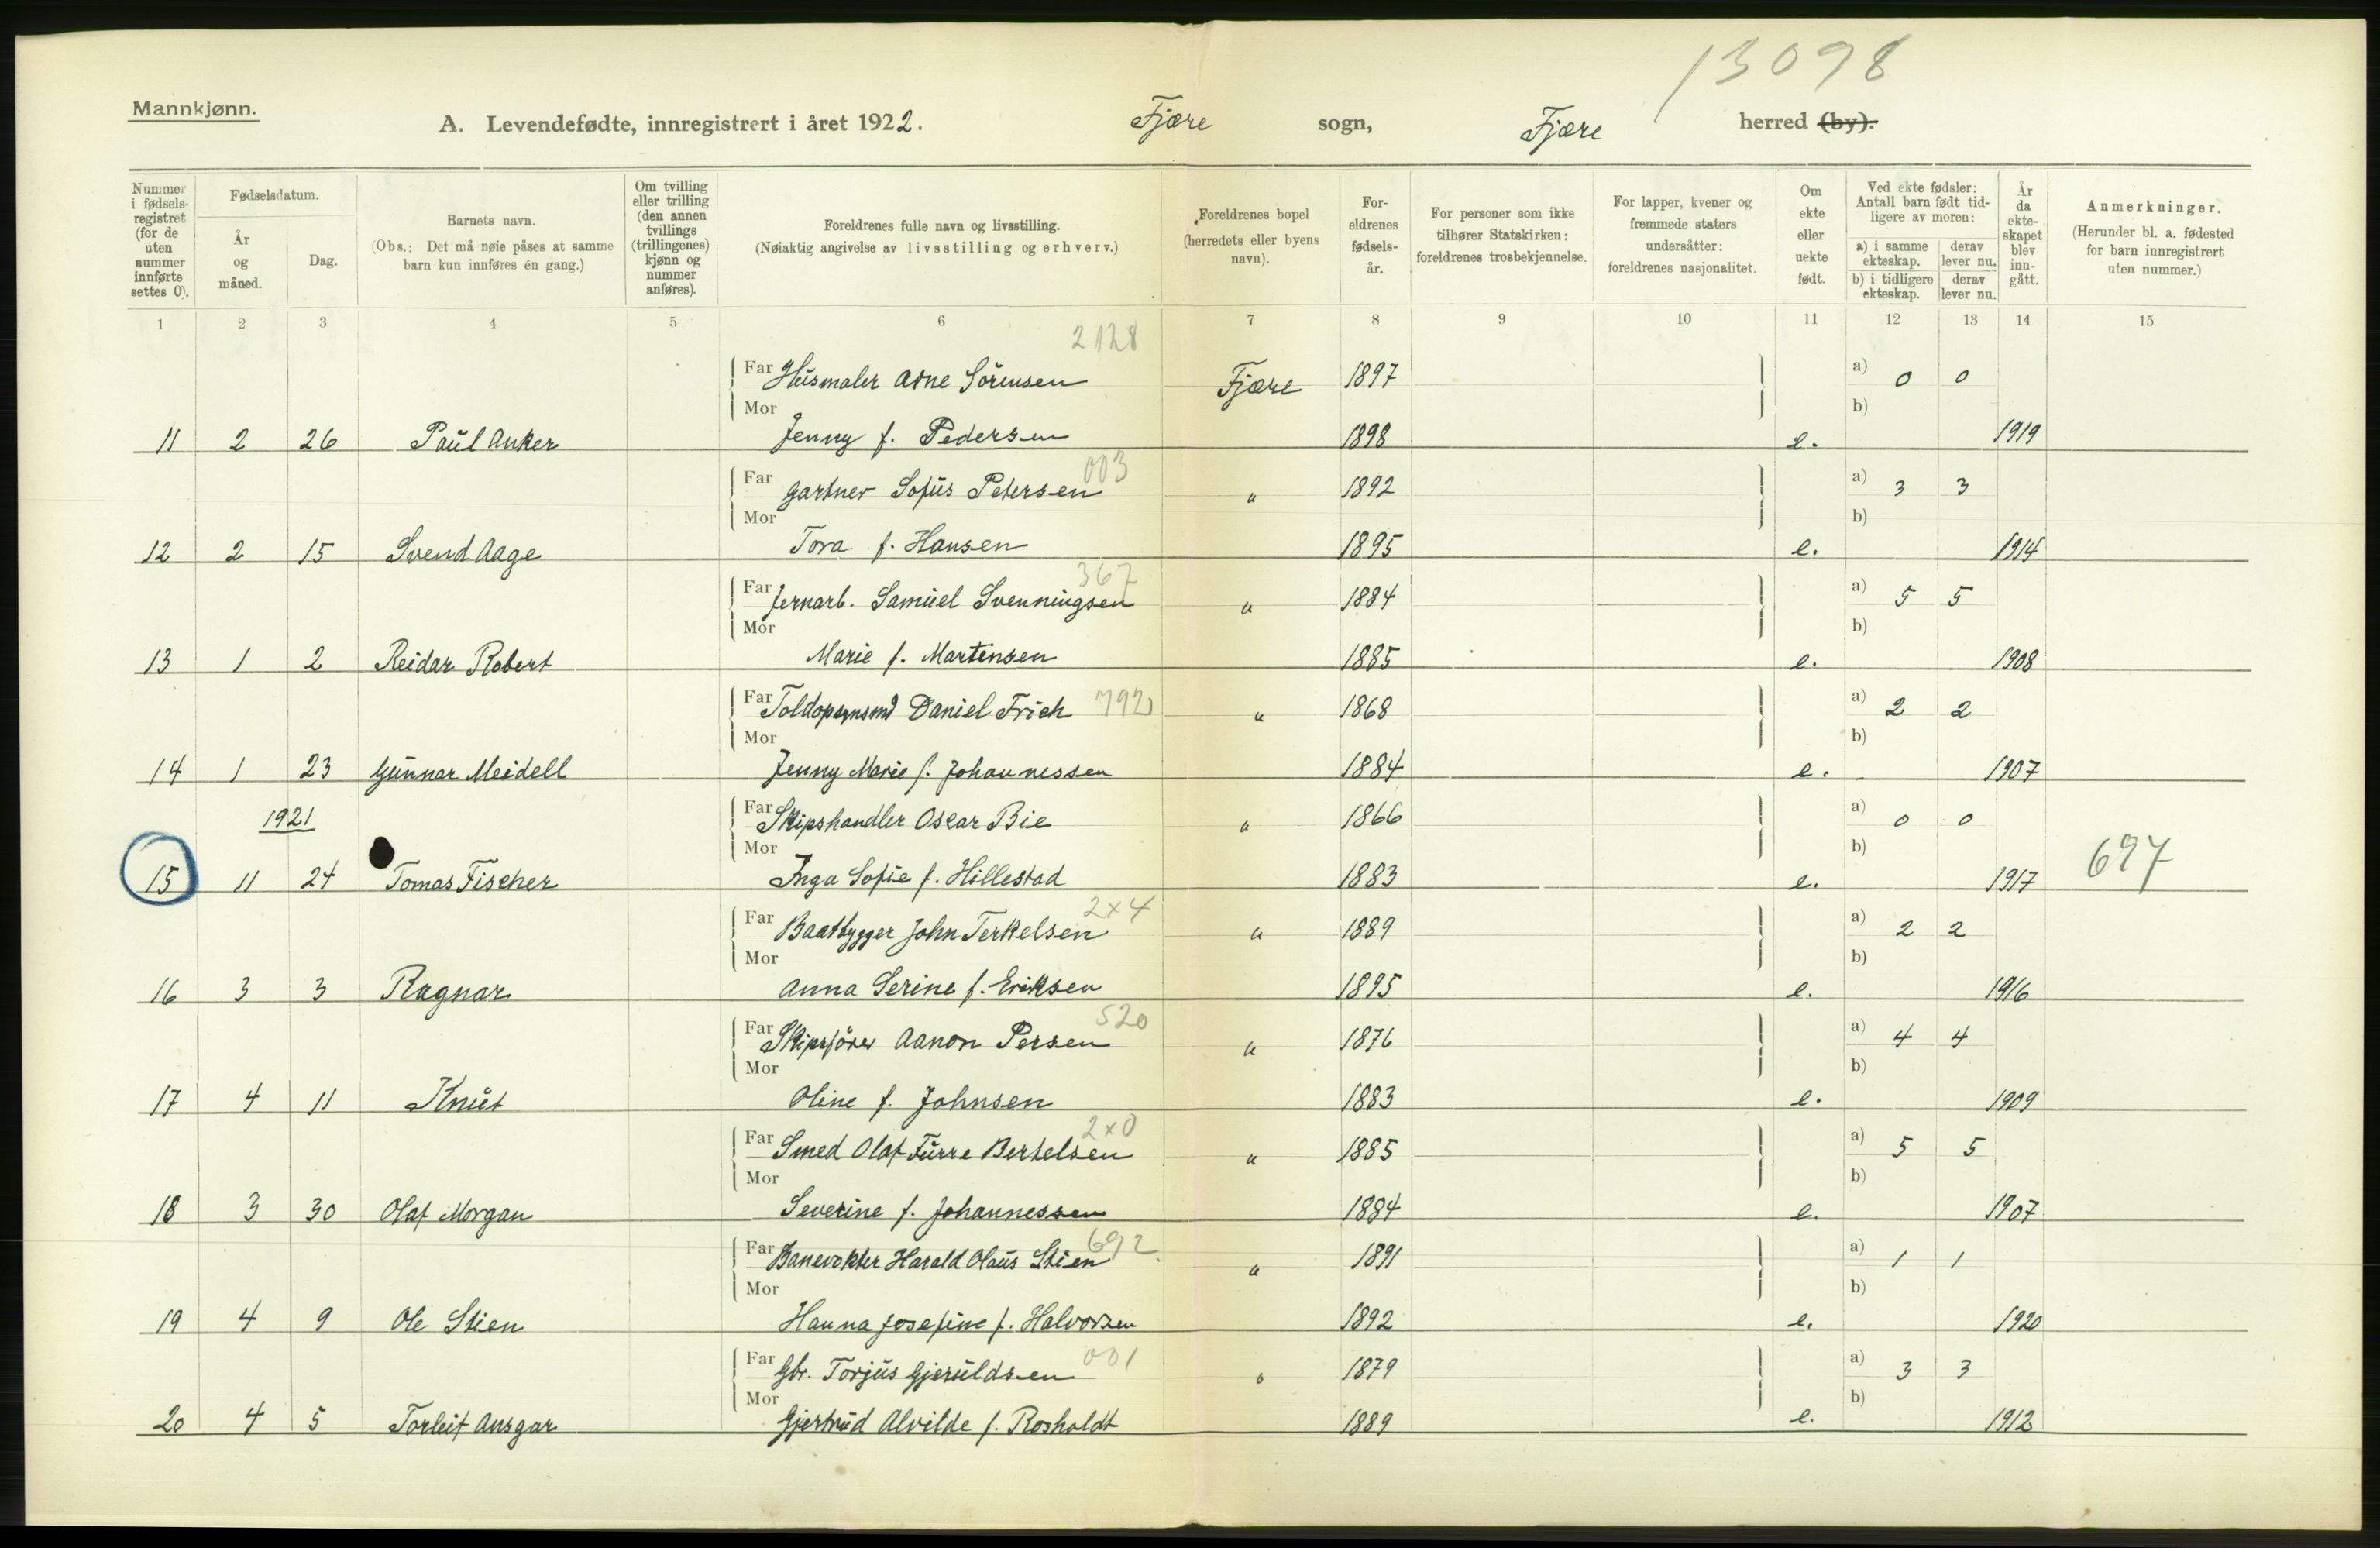 13098
Mannkjønn.
A. Levendefødte, innregistrert i året 1922. Fjære sogn, Fjære herred (by).
Nummer i fødsels-registret (for de uten nummer innførte settes 0).
Fødselsdatum.
År og måned.
Dag.
Barnets navn.
(Obs.: Det må nøie påses at samme barn kun innføres én gang.)
Om tvilling eller trilling (den annen tvillings (trillingenes) kjønn og nummer anføres).
Foreldrenes fulle navn og livsstilling.
(Nøiaktig angivelse av livsstilling og erhverv.)
Foreldrenes bopel (herredets eller byens navn).
For-eldrenes fødsels-år.
For personer som ikke tilhører Statskirken: foreldrenes trosbekjennelse.
For lapper, kvener og fremmede staters undersåtter: foreldrenes nasjonalitet.
Om ekte eller uekte født.
Ved ekte fødsler: Antall barn født tid-ligere av moren:
a) i samme ekteskap. derav lever nu.
b) i tidligere ekteskap. derav lever nu.
År da ekte-skapet blev inn-gått.
Anmerkninger.
(Herunder bl. a. fødested for barn innregistrert uten nummer.)
1 2 3 4 5 6 7 8 9 10 11 12 13 14 15
2128
Far Husmaler Arne Sörensen Fjære 1897 a) 0 0
Mor b)
11 2 26 Paul Anker Jenny f. Pedersen 1898 e. 1919
003
Far Gartner Sofus Petersen " 1892 a) 3 3
Mor b)
12 2 15 Svend Aage Tora f. Hansen 1895 e. 1914
367
Far Jernarb. Samuel Svenningsen " 1884 a) 5 5
Mor b)
13 1 2 Reidar Robert Marie f. Martensen 1885 e. 1908
Far Daniel Frich 792 " 1868 a) 2 2
Mor b)
14 1 23 Gunnar Meidell Jenny Marie f. Johannessen 1884 e. 1907
1921
Far Skipshandler Oscar Bie " 1866 a) 0 0
Mor b)
15 11 24 Tomas Fischer Inga Sofie f. Hillestad 1883 e. 1917 697
2x4
Far Baatbygger John Terkelsen " 1889 a) 2 2
Mor b)
16 3 3 Ragnar Anna Serine f. Eriksen 1895 e. 1916
520
Far Skipsförer Aanon Persen " 1876 a) 4 4
Mor b)
17 4 11 Knut Oline f. Johnsen 1883 e. 1909
2x0
Far Smed Olaf Furre Bertelsen " 1885 a) 5 5
Mor b)
18 3 30 Olaf Morgan Severine f. Johannessen 1884 e. 1907
692
Far Banevokter Harald Olaus Stien " 1891 a) 1 1
Mor b)
19 4 9 Ole Stien Hanna Josefine f. Halvorsen 1892 e. 1920
001
Far Gbr. Torjus Gjeruldsen " 1879 a) 3 3
Mor b)
20 4 5 Torleif Ansgar Gjertrud Alvilde f. Rosholdt 1889 e. 1912